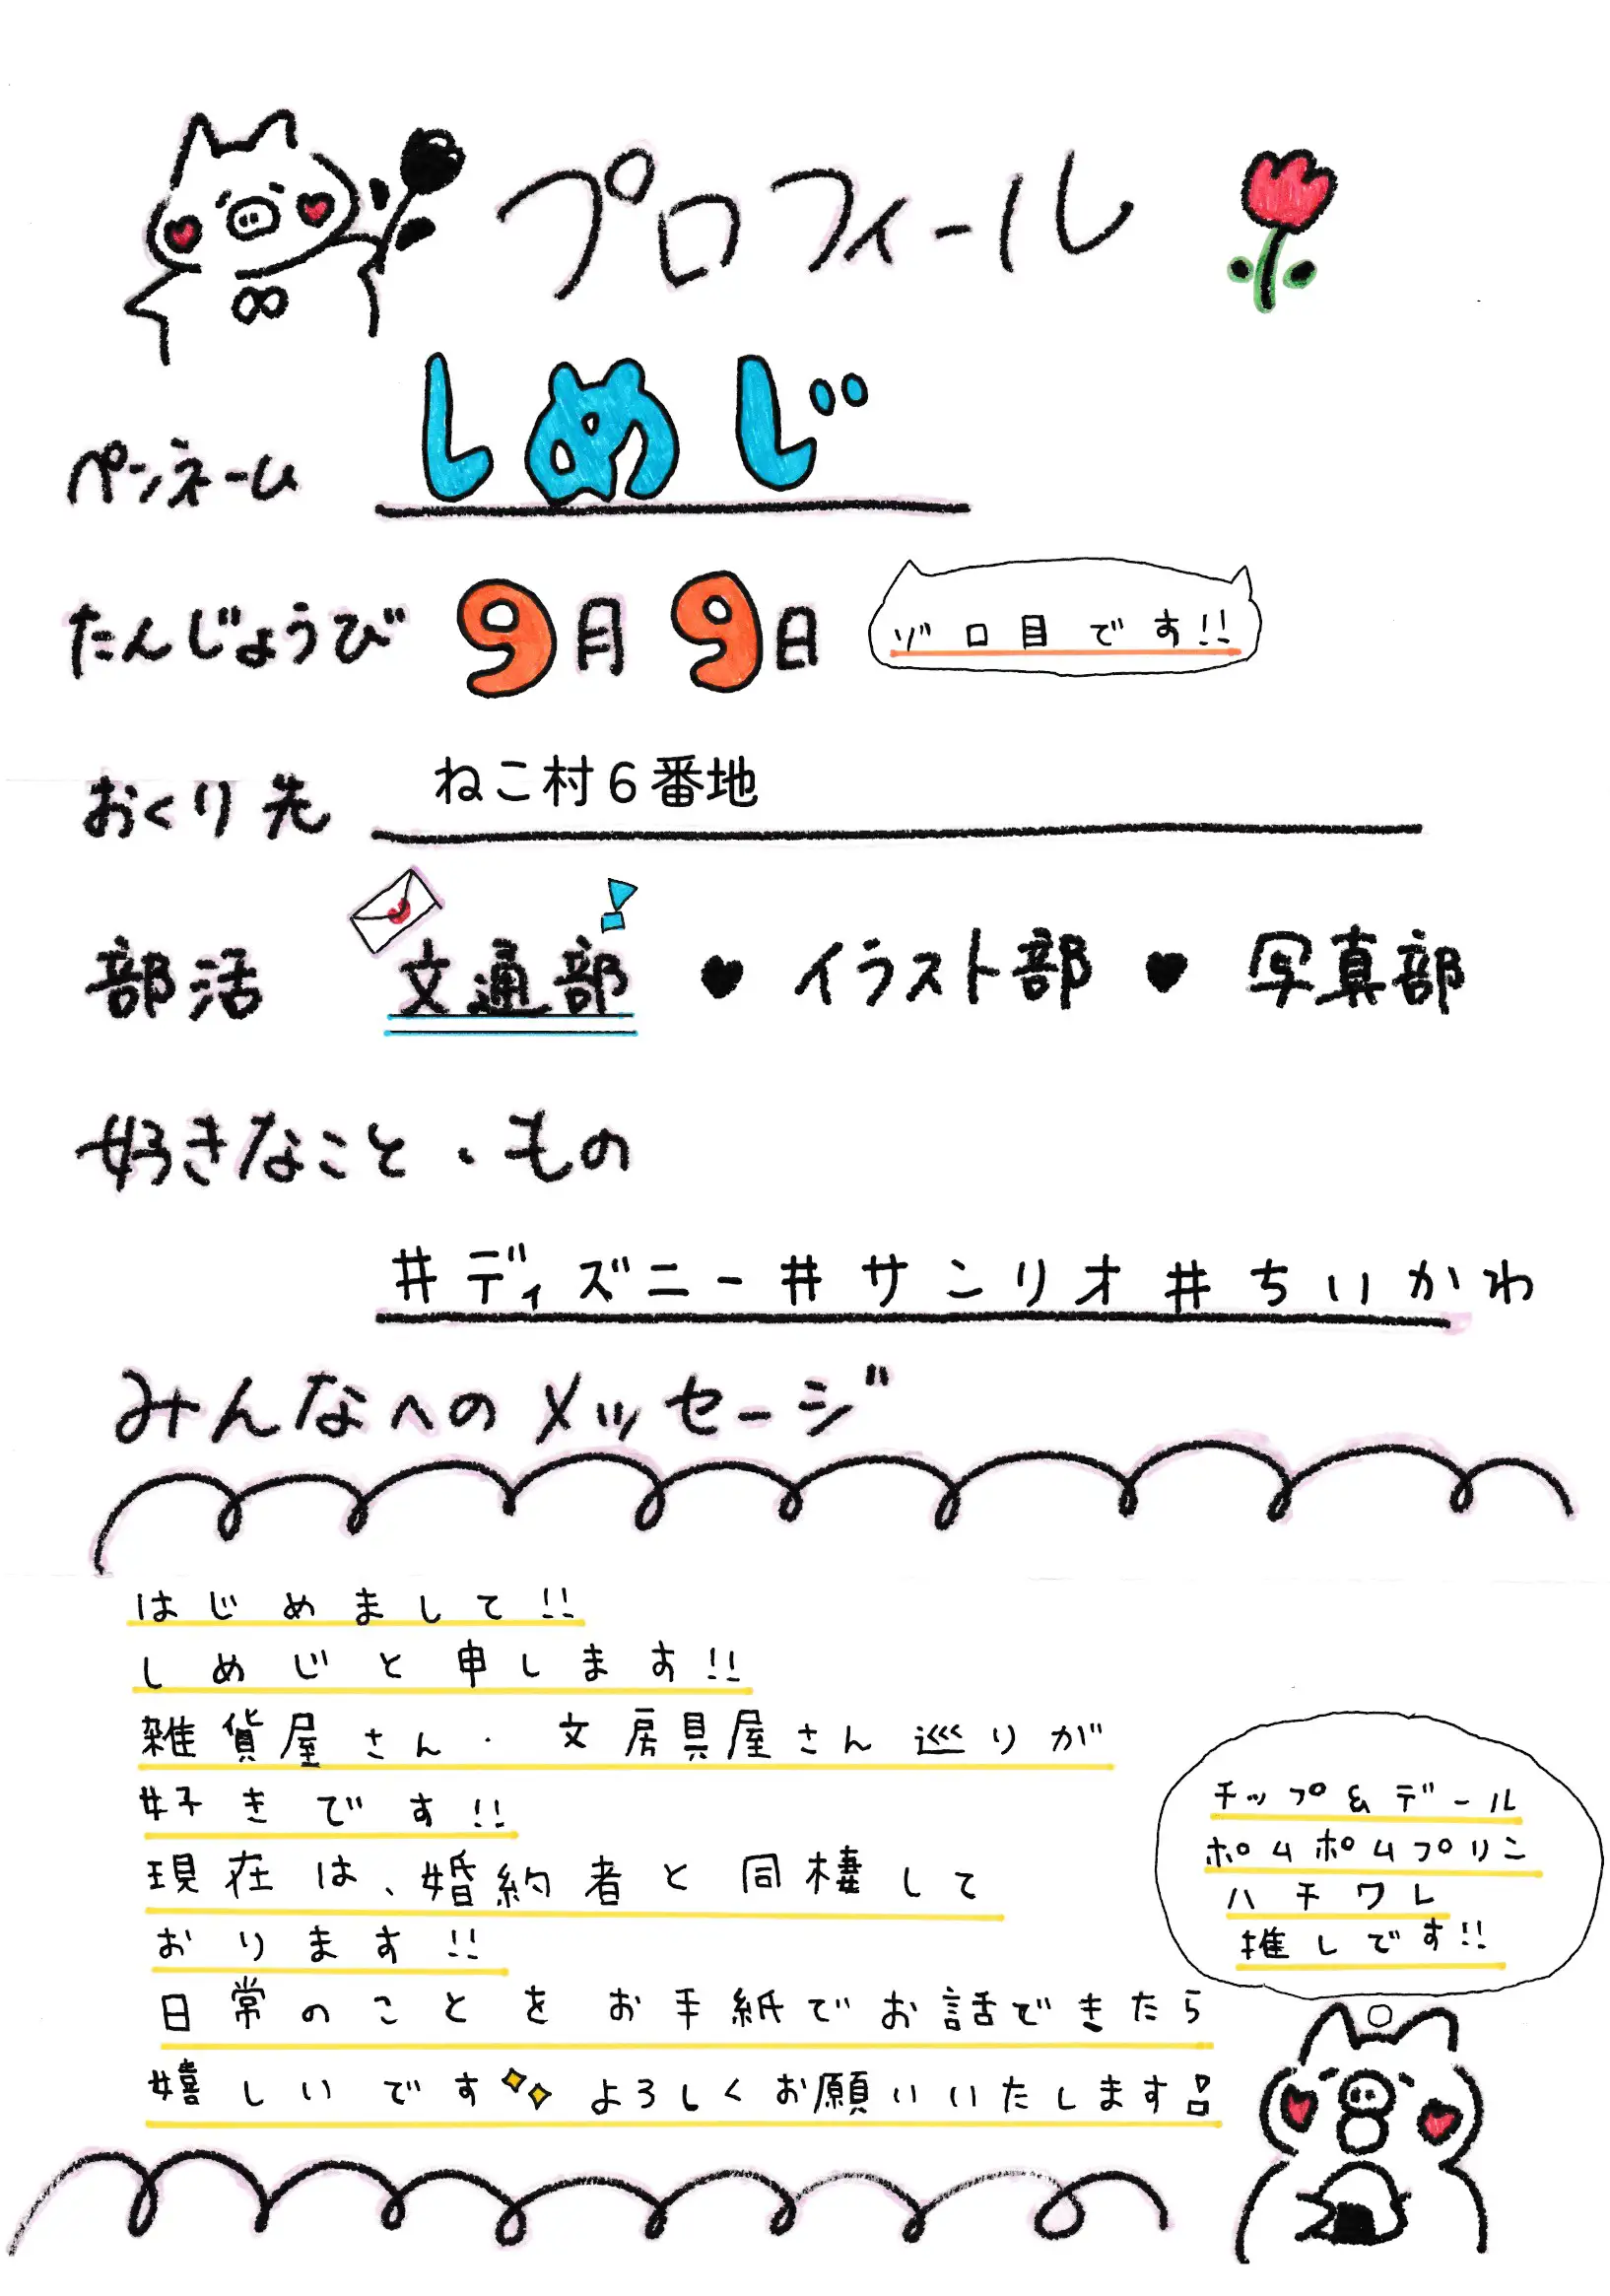 プロフィール
ペンネーム しめじ
たんじょうび 9月9日 ゾロ目です!!
おくり先 ねこ村6番地
部活 文通部 ♥ イラスト部 ♥ 写真部
好きなこと・もの
#ディズニー#サンリオ#ちいかわ
みんなへのメッセージ
はじめまして!!
しめじと申します!!
雑貨屋さん・文房具屋さん巡りが
好きです!!
現在は、婚約者と同棲して
おります!!
日常のことをお手紙でお話できたら
嬉しいです よろしくお願いいたします!
チップ&デール
ポムポムプリン
ハチワレ
推しです!!